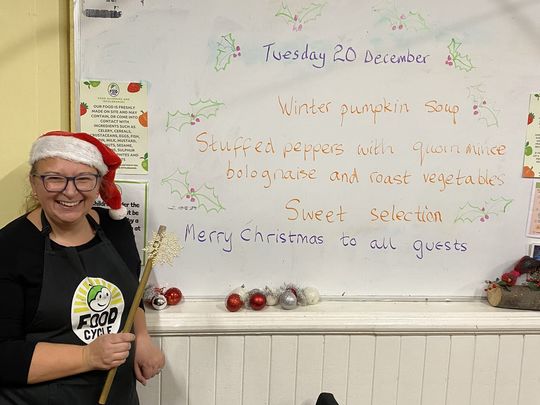 Tuesday 20 December
Winter pumpkin soup
Stuffed peppers with quorn mince
bolognaise and roast vegetables
Sweet selection
Merry Christmas to all guests
FOOD ALLERGIES AND
INTOLERANCES
OUR FOOD IS FRESHLY
MADE ON SITE AND MAY
CONTAIN, OR COME INTO
CONTACT WITH
INGREDIENTS SUCH AS
CELERY, CEREALS,
CRUSTACEANS, EGGS, FISH,
MILK, MUSTARD,
NUTS, SESAME,
SULPHUR
FOOD
CYCLE